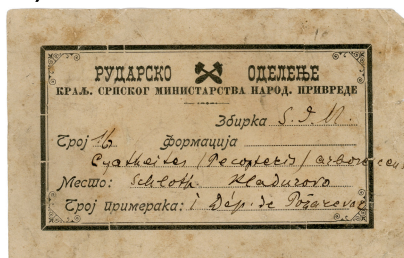 РУДАРСКО ОДЕЛЕЊЕ
КРАЉ. СРПСКОГ МИНИСТАРСТВА НАРОД. ПРИВРЕДЕ
Збирка
Број 16 формација
Cyatheites (Pecopteris) arborescens
Место: Schloth. Kladurovo
Број примерака: 1 Dép. de Požarevac